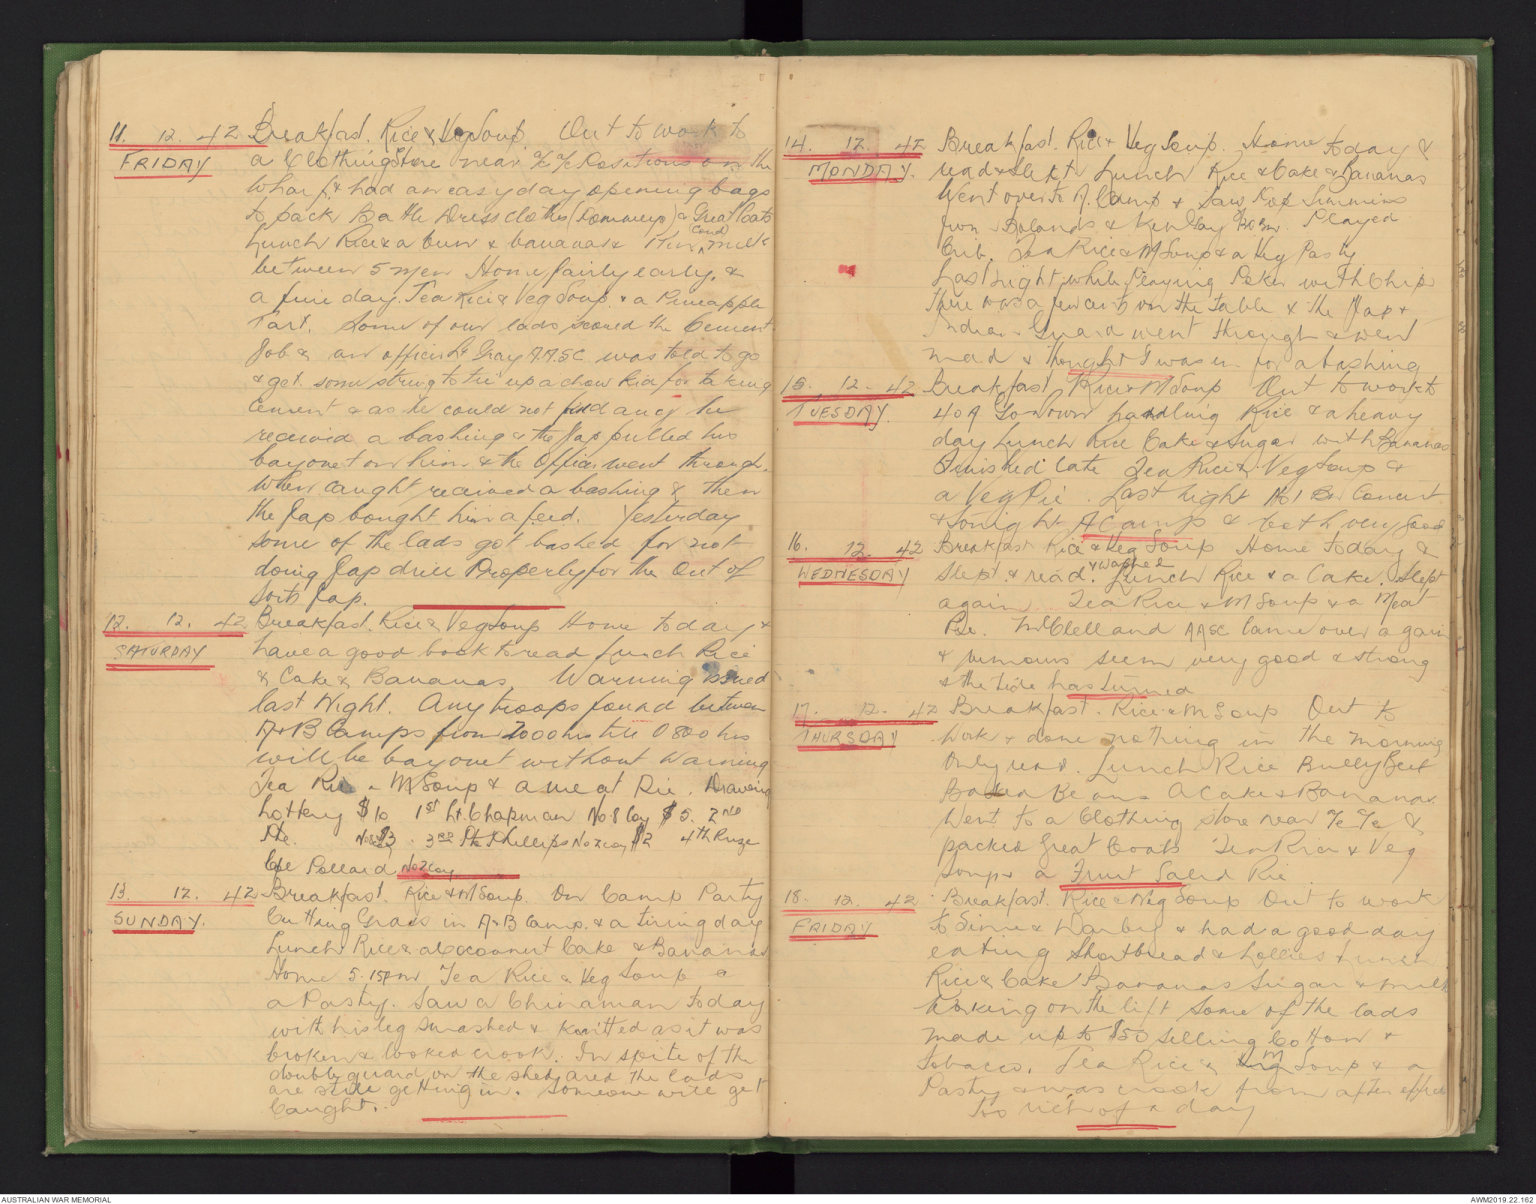 11. 12. 42 Breakfast. Rice & Veg Soup. Out to work to
FRIDAY a Clothing Store near Y.Y. Positions on the
Wharf & had an easy day opening bags
to pack Battle Dress clothes (Dommeys) & Great Coats
Lunch Rice & a bun & bananas & 1 tin cond milk
between 5 men Home fairly early, &
a fine day. Tea Rice & Veg Soup & a Pineapple
Tart. Some of our lads scored the Cement
Job & an officer Lt Gray A.A.S.C. was told to go
& get some string to tie up a chow kid for taking
Cement & as he could not find any he
received a bashing & the Jap pulled his
bayonet on him & the Officer went through.
When caught received a bashing & then
the Jap bought him a feed. Yesterday
some of the lads got bashed for not
doing Jap drill Properly for the Out of
Sorts Jap.
12. 12. 42 Breakfast. Rice & Veg Soup Home today &
SATURDAY have a good book to read Lunch Rice
& Cake & Bananas Warning issued
last Night. Any troops found between
A & B Camps from 2000 hrs till 0800 hrs
will be bayonet without Warning
Tea Rice & M Soup & a meat Pie. Drawing
Lottery $10 1st Lt. Chapman No 8 Coy $5. 2nd
Pte. No 8 $3. 3rd Pte Phillips No 2 Coy $2 4th Prize
Cpl Pollard No 2 Coy
13. 12. 42 Breakfast. Rice & M Soup. On Camp Party
SUNDAY. Cutting Grass in A & B Camp. & a tiring day
Lunch Rice & a Cocoanut Cake & Bananas
Home 5.15pm Tea Rice & Veg Soup &
a Pasty. Saw a Chinaman today
with his leg smashed & knitted as it was
broken & looked crook. In spite of the
double guard on the sheds and the lads
are still getting in. Someone will get
Caught.
14. 12. 42 Breakfast. Rice & Veg Soup. Home today &
MONDAY. read & slept Lunch Rice & Cake & Bananas
Went over to A. Camp & Saw Rod Simmins
from Bolands & Ken Gay Played
Crib. Tea Rice & M Soup & a Veg Pasty
Last night while Playing Poker with Chips
There was a few cents on the table & the Jap &
Indian Guard went through & went
mad & thought I was in for a bashing
15. 12. 42 Breakfast Rice & M Soup Out to work to
TUESDAY. 40A Go Down handling Rice & a heavy
day Lunch Rice Cake & Sugar with Bananas
Finished late Tea Rice & Veg Soup &
a Veg Pie. Last night No 1 Bn Concert
& tonight A Camp & both very good
16. 12. 42 Breakfast Rice & Veg Soup Home today &
WEDNESDAY slept & read. & washed Lunch Rice & a Cake. Slept
again. Tea Rice & M Soup & a Meat
Pie. McClelland AASC Came over again
& rumours seem very good & strong
& the tide has turned
17. 12. 42 Breakfast. Rice & M Soup Out to
THURSDAY work & done nothing in the morning
Only read. Lunch Rice Bully Beef
Baked Beans A Cake & Bananas.
Went to a Clothing store near Y.Y. &
packed Great Coats Tea Rice & Veg
Soup & a Fruit Salad Pie
18. 12. 42 Breakfast. Rice & Veg Soup Out to work
FRIDAY to Sime & Darby & had a good day
eating Shortbread & Lollies Lunch
Rice & Cake Bananas Sugar & milk
Working on the lift Some of the lads
made up to $50 selling Cotton &
Tobacco. Tea Rice & M Soup & a
Pasty & was crook from after effects
Too rich of a day
AUSTRALIAN WAR MEMORIAL
AWM2019.22.162